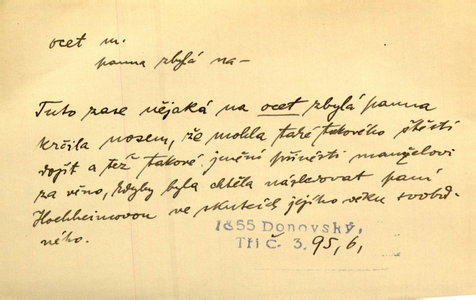 ocet m.
panna zbylá na —
Tuto zase nějaká na ocet zbylá panna
krčila nosem, že mohla také takového štěstí
dojít a též takové jmění přinésti manželovi
za věno, kdyby byla chtěla následovat paní
Hochheimovou ve skutcích jejího věku svobod-
ného.
1855 Donovský,
Tři č. 3. 95, 6,